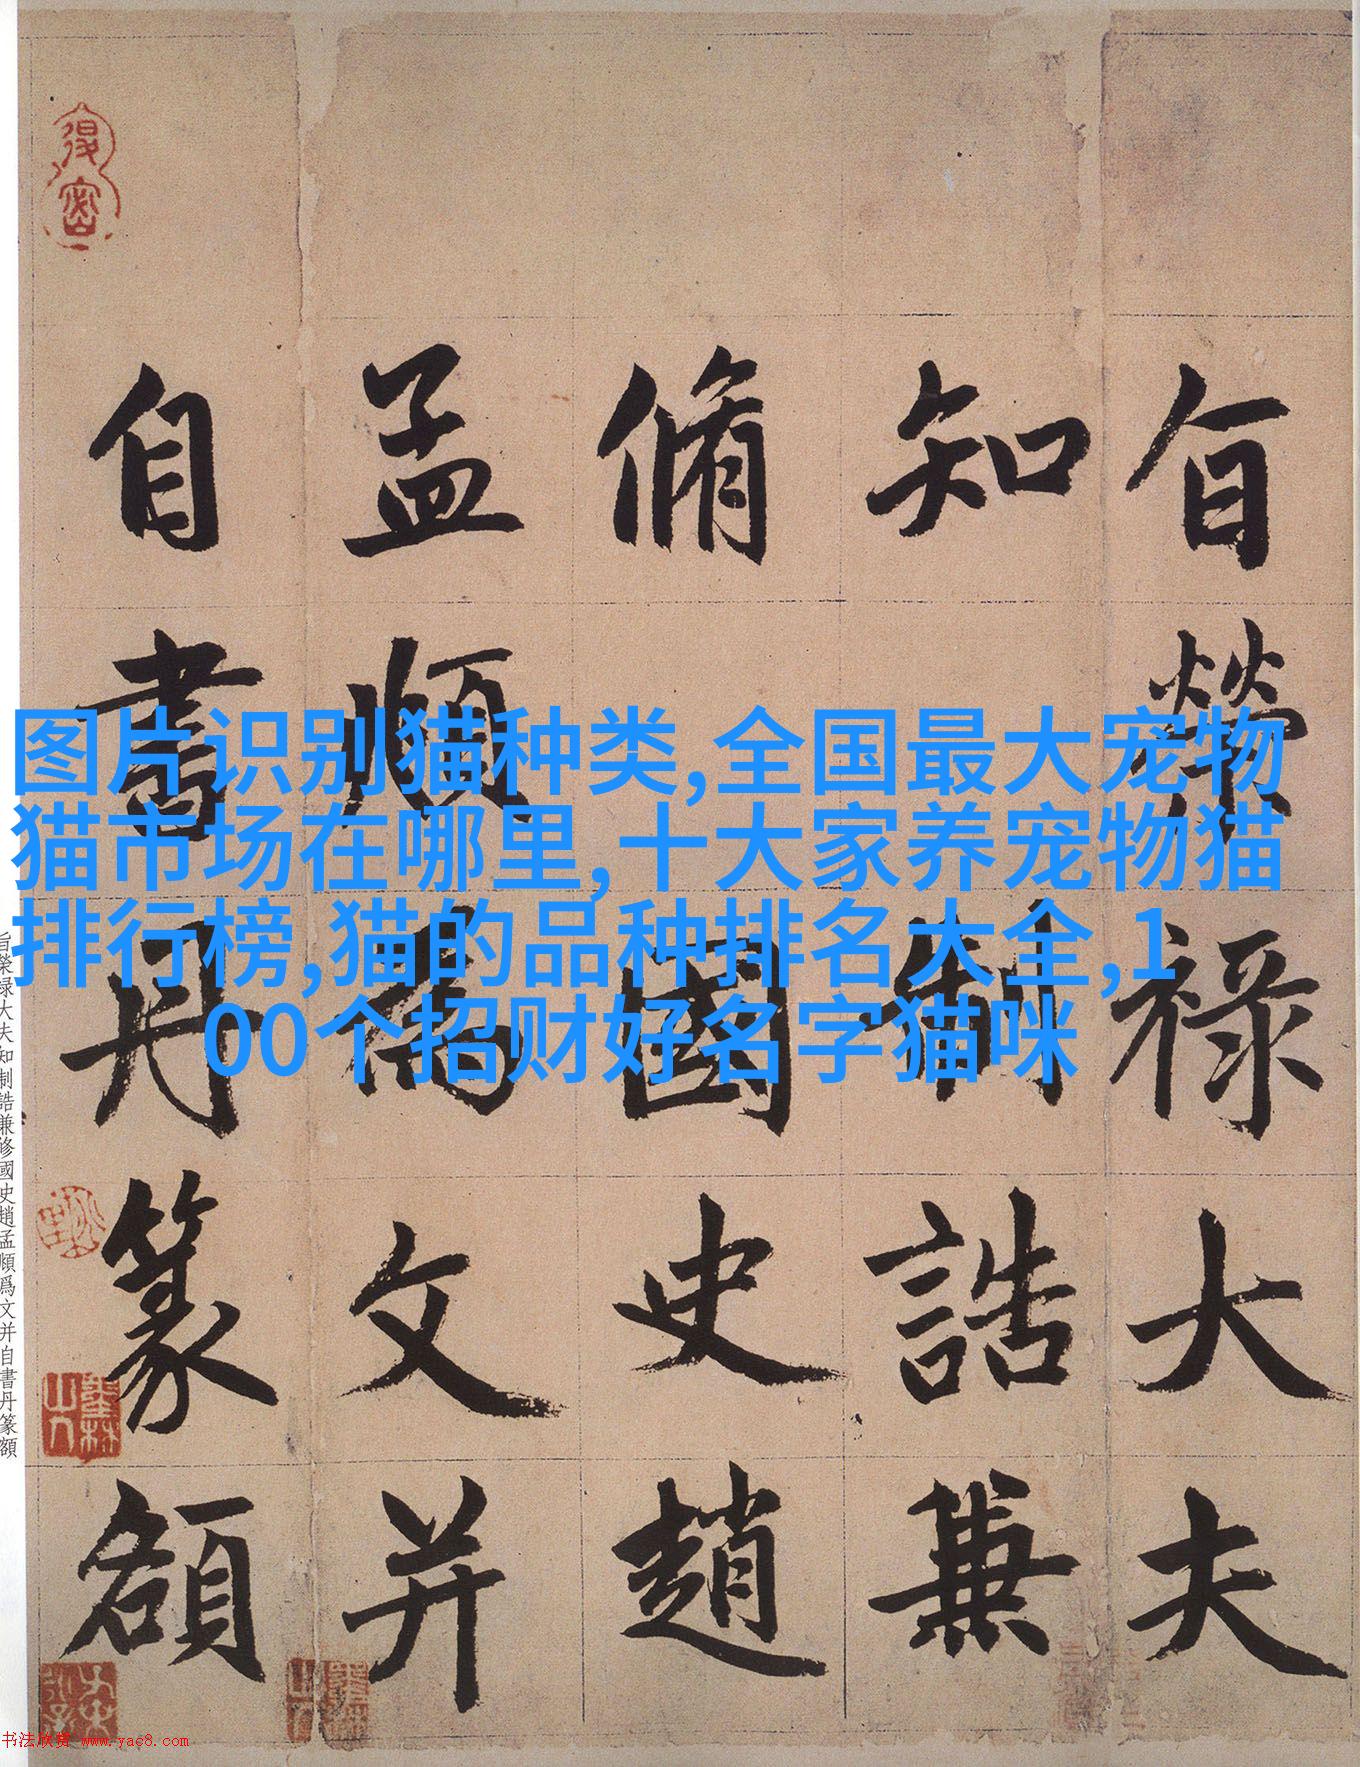 旨榮祿大夫
知制誥兼
脩國史趙
孟頫為文并
自書丹篆額
图片识别猫种类,全国最大宠物
猫市场在哪里,十大家养宠物猫
排行榜,猫的品种排名大全,1
00个招财好名字猫咪
旨榮禄大夫知制誥兼修國史趙孟頫爲文并自書丹篆額
书法欣赏 www.yac8.com